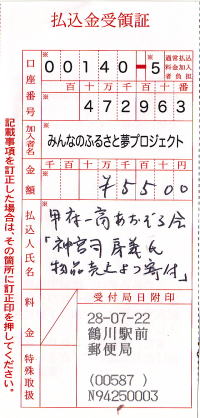 払込金受領証
口座番号
00140-5
通常払込
料金加入
者負担
千百十万千百十番
472963
加入者名
みんなのふるさと夢プロジェクト
金額
千百十万千百十円
¥5500
払込人氏名
甲府一高あおぞら会
物品売上よつ寄付」
料金
特殊取扱
受付局日附印
28-07-22
鶴川駅前
郵便局
(00587)
N94250003
記載事項を訂正した場合は、その箇所に訂正印を押してください。